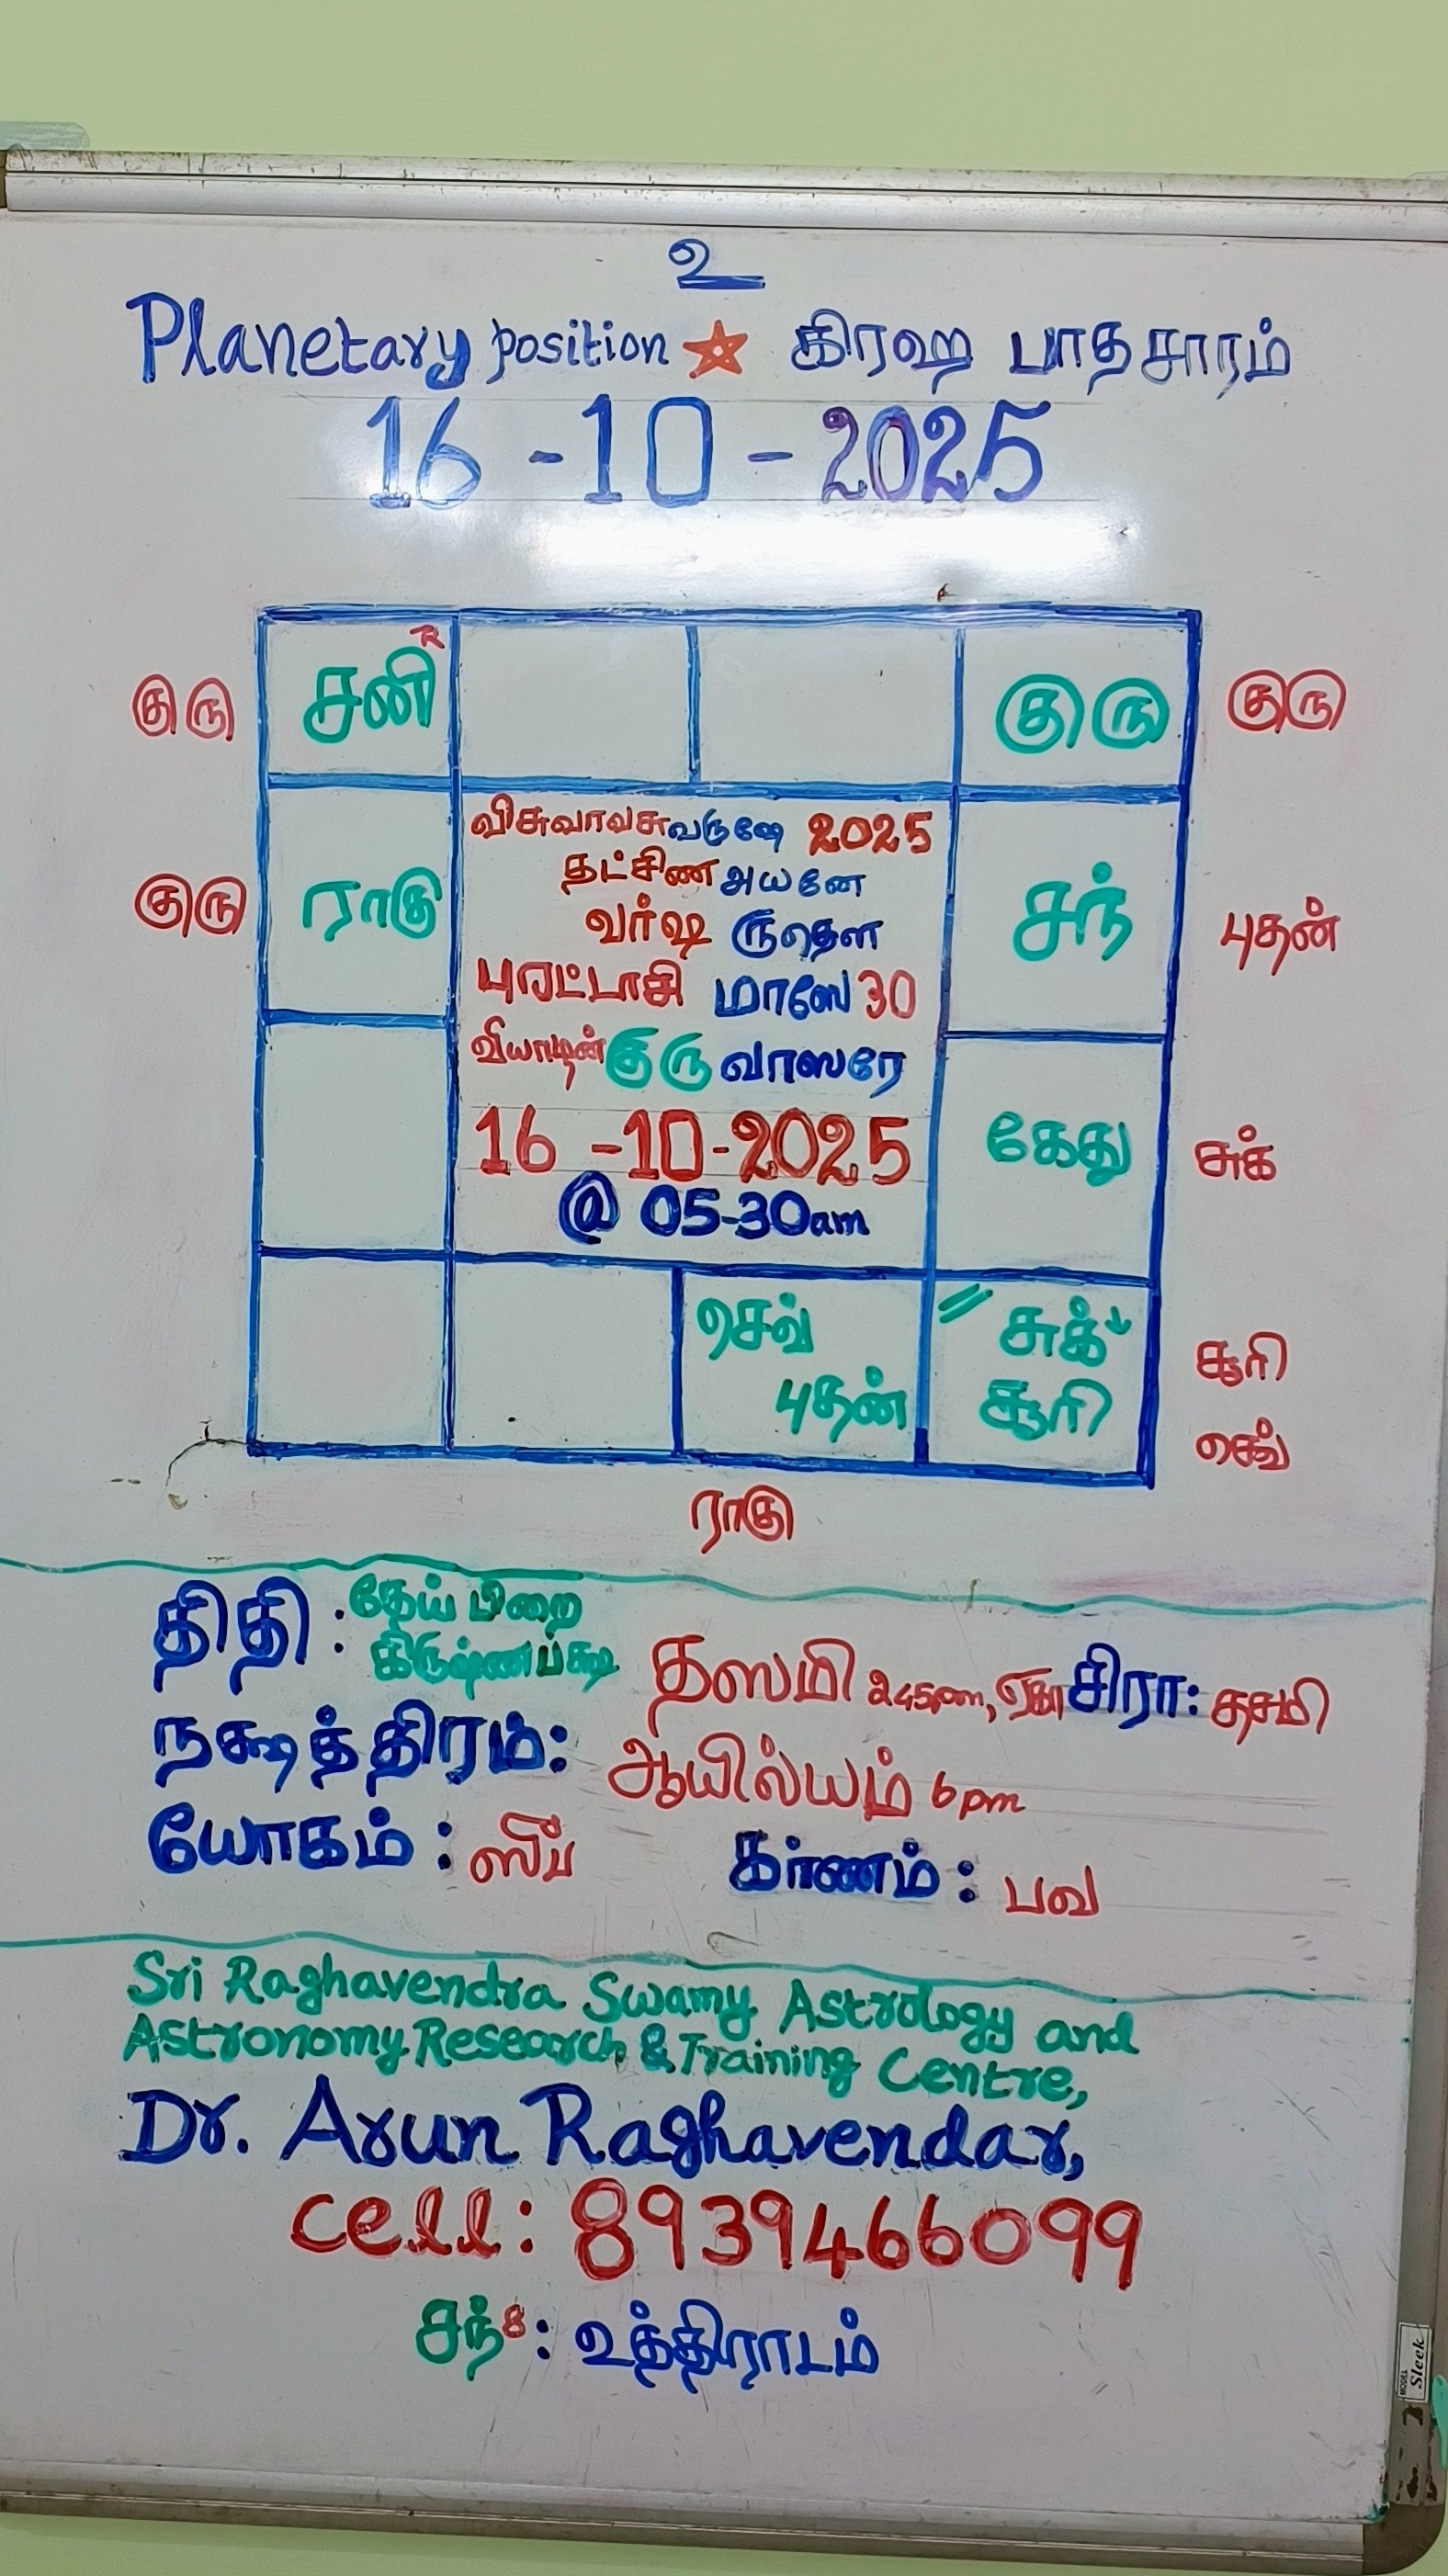 உ
Planetary position ☆ கிரஹ பாதசாரம்
16 - 10 - 2025
R
குரு சனி குரு குரு
விசுவாவசுவருஷே 2025
தட்சிண அயனே
வர்ஷ ருதௌ
குரு ராகு சந் புதன்
புரட்டாசி மாஸே 30
வியாழன் குரு வாஸரே
16 -10-2025
கேது சுக்
@ 05-30am
செவ் சுக்↓
புதன் சூரி சூரி
செவ்
ராகு
திதி : தேய் பிறை
கிருஷ்ணபக்ஷ தஸமி சிரா: தசமி
நக்ஷத்திரம்: ஆயில்யம் 6 pm
யோகம் : கர்ணம் : பவ
Sri Raghavendra Swamy Astrology and
Astronomy Research & Training Centre,
Dr. Arun Raghavendar,
cell: 8939466099
சந்8: உத்திராடம்
Sleek